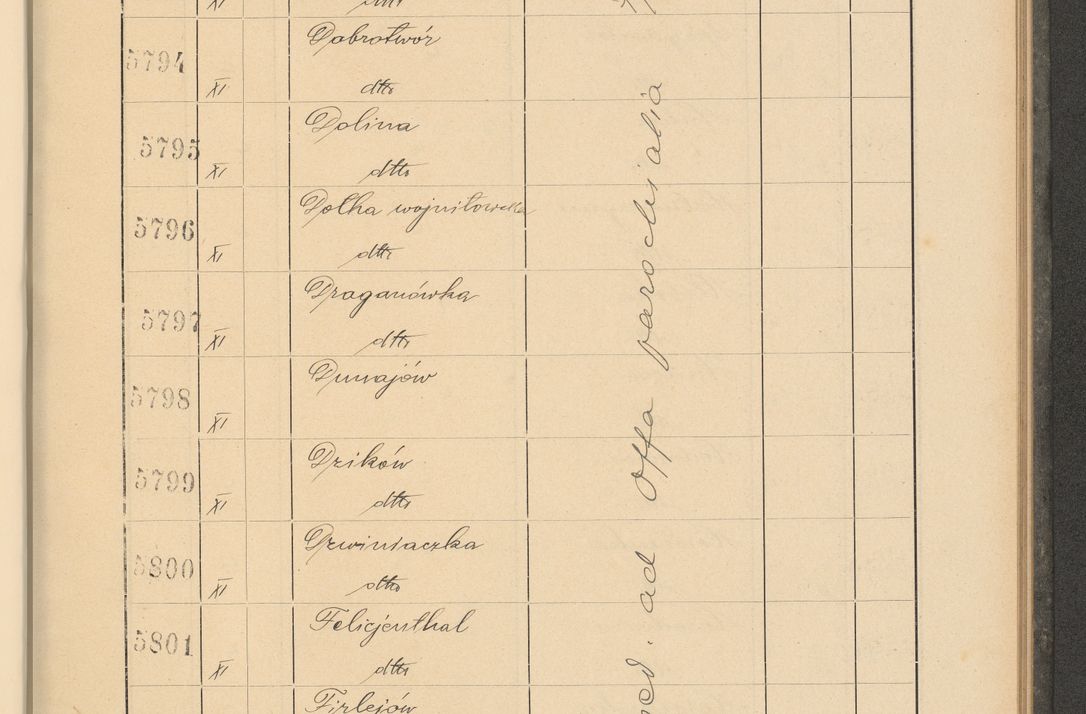 XI dtto
5794 XI Dobrotwór
dtto
5795 XI Dolina
dtto
5796 XI Dołha wojniłowska
dtto
5797 XI Draganówka
dtto
5798 XI Dunajów
5799 XI Dzików
dtto
5800 XI Dzwiniaczka
dtto
5801 XI Felicjenthal
dtto
Firlejów
ad Offa parochialia